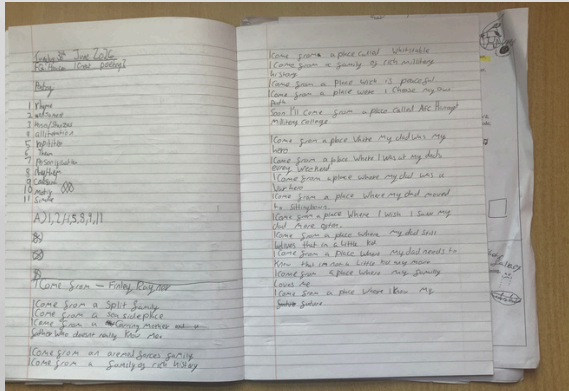 June 2026
Poetry
1 Rhyme
5 repitition
7 Personification
11 Simile
A) 1, 2, 4, 5, 8, 9, 11
I Come from – Finley Raynor
I Come from a Split family
I Come from a sea side place
I Come from a Caring Mother and a
father who doesnt really know me
I Come from an armed forces family
I Come from a family of rich history
I Come from a place called Whitstable
I Come from a family of rich military
history
I Come from a place wich is peaceful.
I Come from a place were I Choose my own
path
Soon I'll Come from a place called Afc Harrogate
Military College
I Come from a place Where my dad was my
hero
I Come from a place Where I was at my dads
every weekend
I Come from a place where my dad was a
war hero
I Come from a place where my dad moved
to Sittingbourne.
I Come from a place Where I wish I saw my
dad more often.
I Come from a place where my dad still
belives that im a little kid
I Come from a place Where my dad needs to
Know that im not a little kid any more
I Come from a place where my family
Loves me
I Come from a place where I know my
future